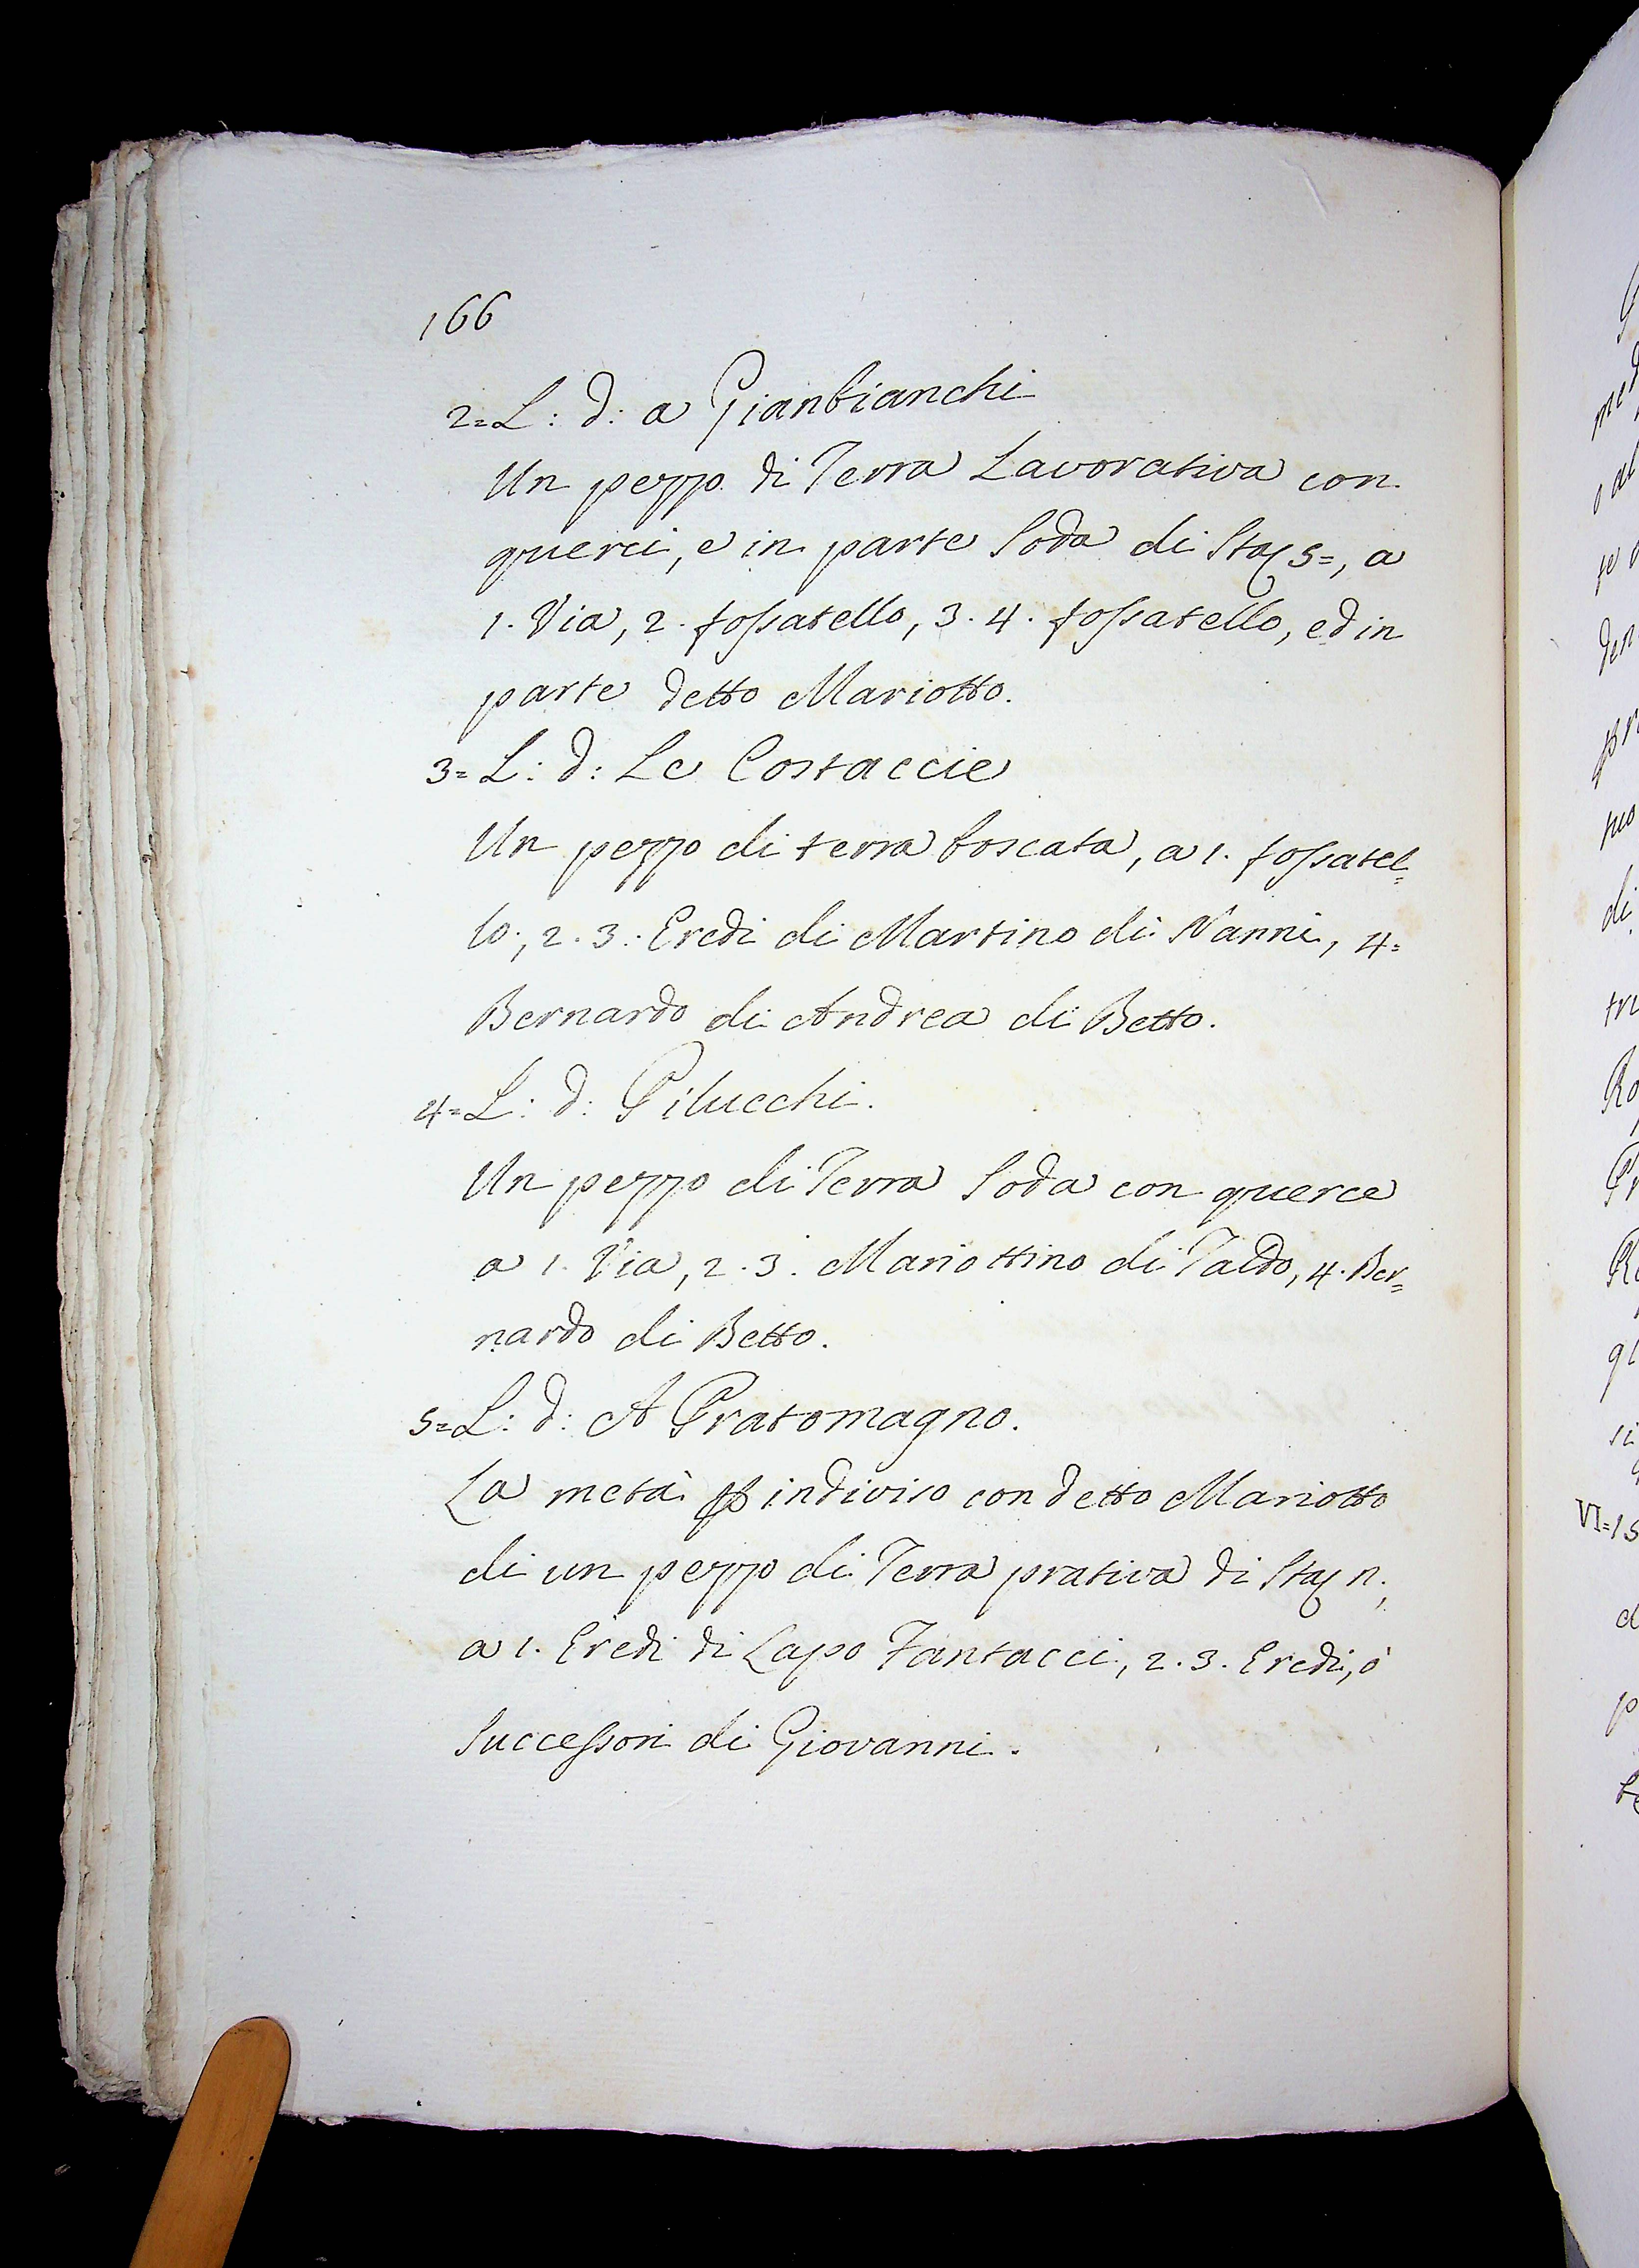 166
2=L: d: a Gianbianchi
Un pezzo di Terra Lavorativa con
querci, e in parte Soda di Sta 5=, a
1. Via, 2. fossatello, 3. 4. fossatello, ed in
parte detto Mariotto.
3= L: d: Le Costaccie
Un pezzo di terra boscata, a 1. fossatel=
lo, 2. 3. Eredi di Martino di Nanni, 4=
Bernardo di Andrea di Betto.
4=L: d: Pilucchi.
Un pezzo di Terra Soda con querce
a 1. Via, 2. 3. Mariottino di Taldo, 4. Ber=
nardo di Betto.
5=L: d: A Pratomagno.
La metà p indiviso con detto Mariotto
di un pezzo di Terra prativa di Sta n;
a 1. Eredi di Lapo Fantacci, 2. 3. Eredi, ò
Successori di Giovanni.